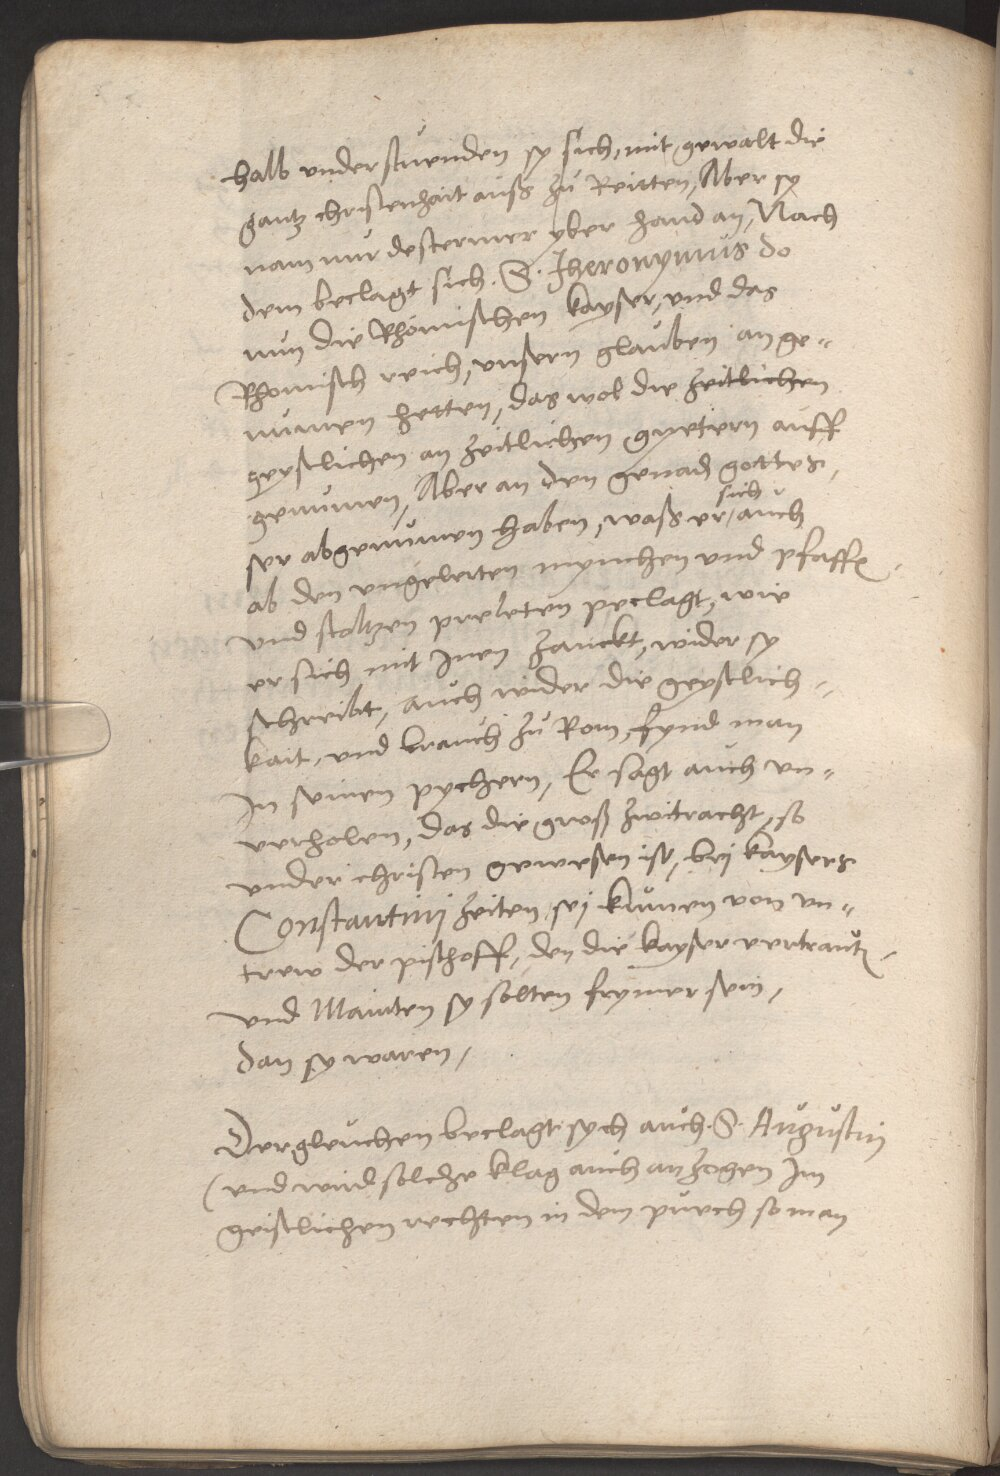 halb understuenden sy sich, mit gewalt die
gantz christenhait auß zů Reitten, Aber sy
nam nur destermer yber hand an, Nach
dem beclagt sich .S. Jheronymus do
nun die Rhömischen kayser, und das
Rhomisch reich, unsern glauben ange-
numen hetten, das wol die zeitlichen
geystlichen an zeitlichen gyetern auff
genumen, Aber an den genad gottes,
ser abgenumen haben, waß er sich auch
ab den ungelerten mynchen und pfaffen
und stoltzen preleten peclagt, wie
er sich mit Inen zanckt, wider sy
schreibt, auch wider die geystlich-
kait, und brauch zů Rom, fynd man
In seinen pychern, Er sagt auch un-
verholen, das die groß zwitracht, so
under christen gewesen ist, bej kaysers
Constantinj zeiten, sej kumen von un-
trew der pischoff, den die kayser vertrautn
und Mainten sy solten frymer sein,
dan sy waren,
Dergleuchen beclagt sych auch .S. Augustin
(und wird solche klag auch anzogen Im
geistlichen rechten in dem puech so man